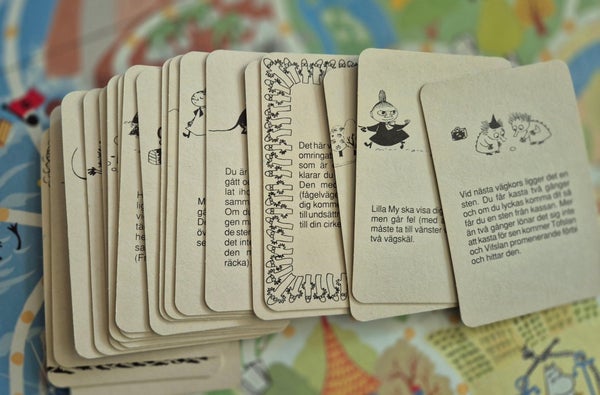 Du är
gått oc
lat iho
samm
Om du
gen m
det inte
den m
räcka).
Det här v
omringat
som är
klarar du
Den med
(fågelväge
dig komma
till undsättn
till din cirke
Lilla My ska visa dig
men går fel (med
måste ta till vänster
två vägskäl.
Vid nästa vägkors ligger det en
sten. Du får kasta två gånger
och om du lyckas komma dit så
får du en sten från kassan. Mer
än två gånger lönar det sig inte
att kasta för sen kommer Tofslan
och Vifslan promenerande förbi
och hittar den.